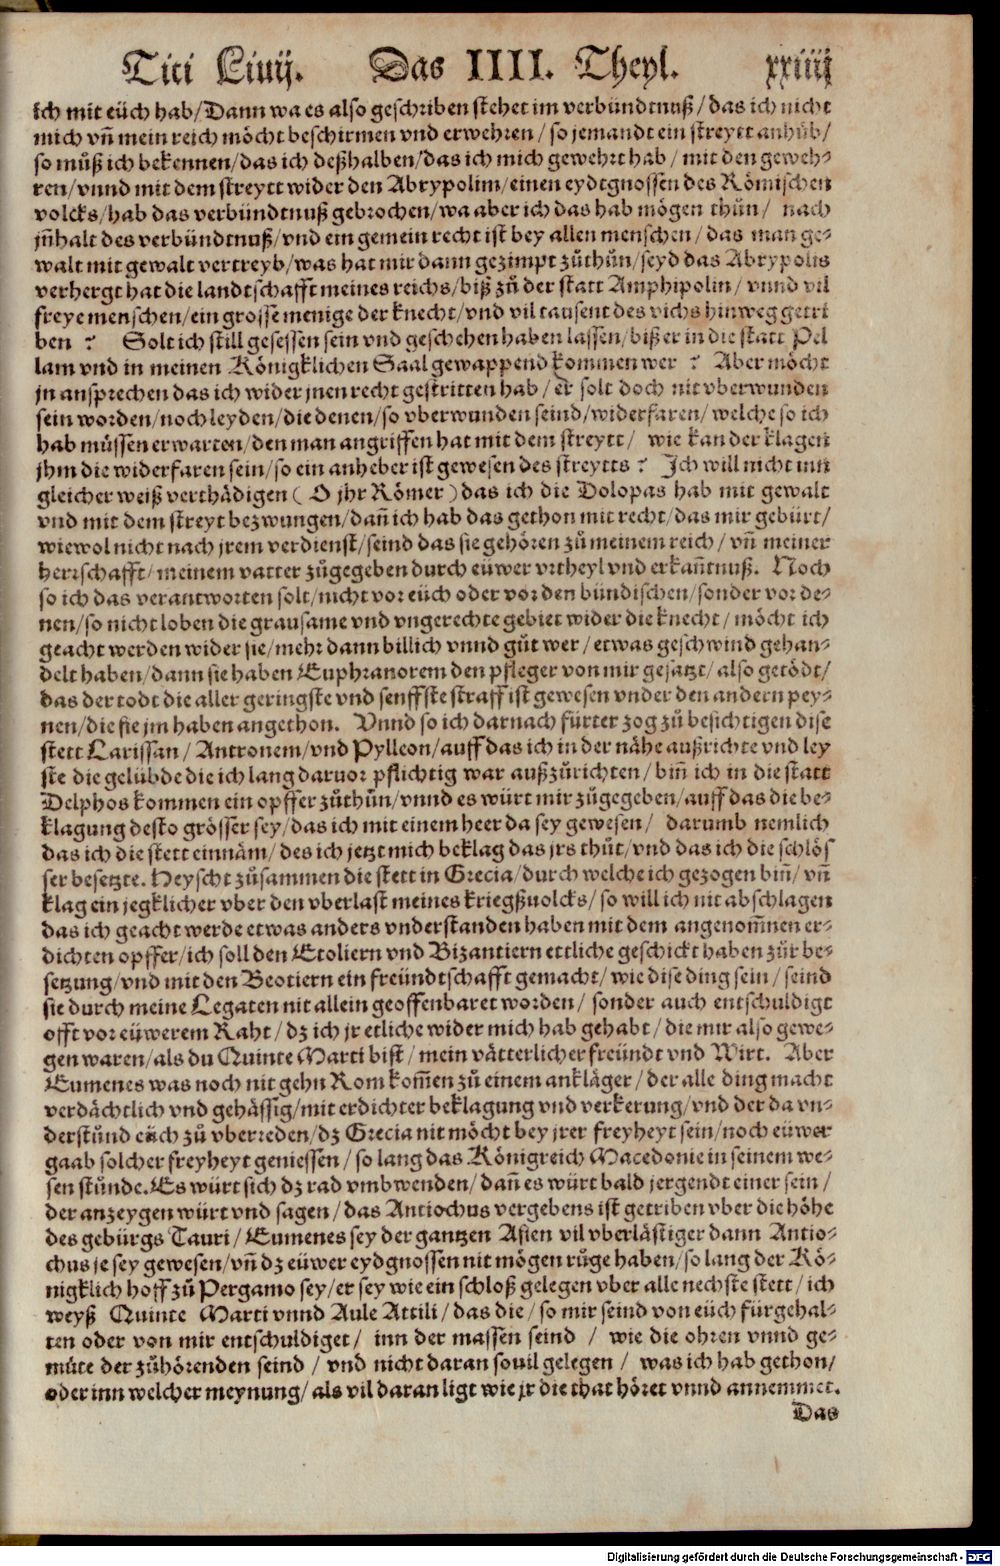 Titi Liuij. Das IIII. Theyl. xxiiij
ich mit eüch hab/Dann wa es also geschriben stehet im verbündtnuß/das ich nicht
mich vñ mein reich möcht beschirmen vnd erwehren/so jemandt ein streytt anhůb/
so můß ich bekennen/das ich deßhalben/das ich mich gewehrt hab/mit den geweh⸗
ren/vnnd mit dem streytt wider den Abrypolim/einen eydtgnossen des Römischen
volcks/hab das verbündtnuß gebrochen/wa aber ich das hab mögen thůn/ nach
jñhalt des verbündtnuß/vnd ein gemein recht ist bey allen menschen/das man ge⸗
walt mit gewalt vertreyb/was hat mir dann gezimpt zůthůn/seyd das Abrypolis
verhergt hat die landtschafft meines reichs/biß zů der statt Amphipolin/vnnd vil
freye menschen/ein grosse menige der knecht/vnd vil tausent des vichs hinweg getri
ben? Solt ich still gesessen sein vnd geschehen haben lassen/biß er in die statt Pel
lam vnd in meinen Königklichen Saal gewappend kommen wer? Aber möcht
jn ansprechen das ich wider jnen recht gestritten hab/er solt doch nit vberwunden
sein worden/noch leyden/die denen/so vberwunden seind/widerfaren/welche so ich
hab müssen erwarten/den man angriffen hat mit dem streytt/ wie kan der klagen
jhm die widerfaren sein/so ein anheber ist gewesen des streytts? Ich will nicht inn
gleicher weiß verthädigen (O jhr Römer) das ich die Dolopas hab mit gewalt
vnd mit dem streyt bezwungen/dañ ich hab das gethon mit recht/das mir gebürt/
wiewol nicht nach jrem verdienst/seind das sie gehören zů meinem reich/vñ meiner
herrschafft/meinem vatter zůgegeben durch eüwer vrtheyl vnd erkañtnuß. Noch
so ich das verantworten solt/nicht vor eüch oder vor den bündischen/sonder vor de⸗
nen/so nicht loben die grausame vnd vngerechte gebiet wider die knecht/möcht ich
geacht werden wider sie/mehr dann billich vnnd gůt wer/etwas geschwind gehan⸗
delt haben/dann sie haben Euphranorem den pfleger von mir gesatzt/also getödt/
das der todt die aller geringste vnd senffste straff ist gewesen vnder den andern pey⸗
nen/die sie jm haben angethon. Vnnd so ich darnach fürter zog zů besichtigen dise
stett Larissan/Antronem/vnd Pylleon/auff das ich in der nähe außrichte vnd ley
ste die gelübde die ich lang daruor pflichtig war außzůrichten/biñ ich in die statt
Delphos kommen ein opffer zůthůn/vnnd es würt mir zůgegeben/auff das die be⸗
klagung desto grösser sey/das ich mit einem heer da sey gewesen/ darumb nemlich
das ich die stett einnäm/des ich jetzt mich beklag das jrs thůt/vnd das ich die schlös
ser besetzte. Heyscht zůsammen die stett in Grecia/durch welche ich gezogen biñ/vñ
klag ein jegklicher vber den vberlast meines kriegßuolcks/so will ich nit abschlagen
das ich geacht werde etwas anders vnderstanden haben mit dem angenom̃nen er⸗
dichten opffer/ich soll den Etoliern vnd Bizantiern ettliche geschickt haben zůr be⸗
setzung/vnd mit den Beotiern ein freündtschafft gemacht/wie dise ding sein/seind
sie durch meine Legaten nit allein geoffenbaret worden/sonder auch entschuldigt
offt vor eüwerem Raht/dz ich jr etliche wider mich hab gehabt/die mir also gewe⸗
gen waren/als du Quinte Marti bist/mein vätterlicher freündt vnd Wirt. Aber
Eumenes was noch nit gehn Rom kom̃en zů einem ankläger/der alle ding macht
verdächtlich vnd gehässig/mit erdichter beklagung vnd verkerung/vnd der da vn⸗
derstůnd eüch zů vberreden/dz Grecia nit möcht bey jrer freyheyt sein/noch eüwer
gaab solcher freyheyt geniessen/so lang das Königreich Macedonie in seinem we⸗
sen stůnde. Es würt sich dz rad vmbwenden/dañ es würt bald jergendt einer sein/
der anzeygen würt vnd sagen/das Antiochus vergebens ist getriben vber die höhe
des gebürgs Tauri/Eumenes sey der gantzen Asien vil vberlästiger dann Antio⸗
chus je sey gewesen/vñ dz eüwer eydgnossen nit mögen růge haben/so lang der Kö⸗
nigklich hoff zů Pergamo sey/er sey wie ein schloß gelegen vber alle nechste stett/ich
weyß Quinte Marti vnnd Aule Attili/das die/so mir seind von eüch fürgehal⸗
ten oder von mir entschuldiget/ inn der massen seind / wie die ohren vnnd ge⸗
müte der zůhörenden seind / vnd nicht daran souil gelegen / was ich hab gethon/
oder inn welcher meynung/als vil daran ligt wie jr die that höret vnnd annemmet.
Das
Digitalisierung gefördert durch die Deutsche Forschungsgemeinschaft - DFG